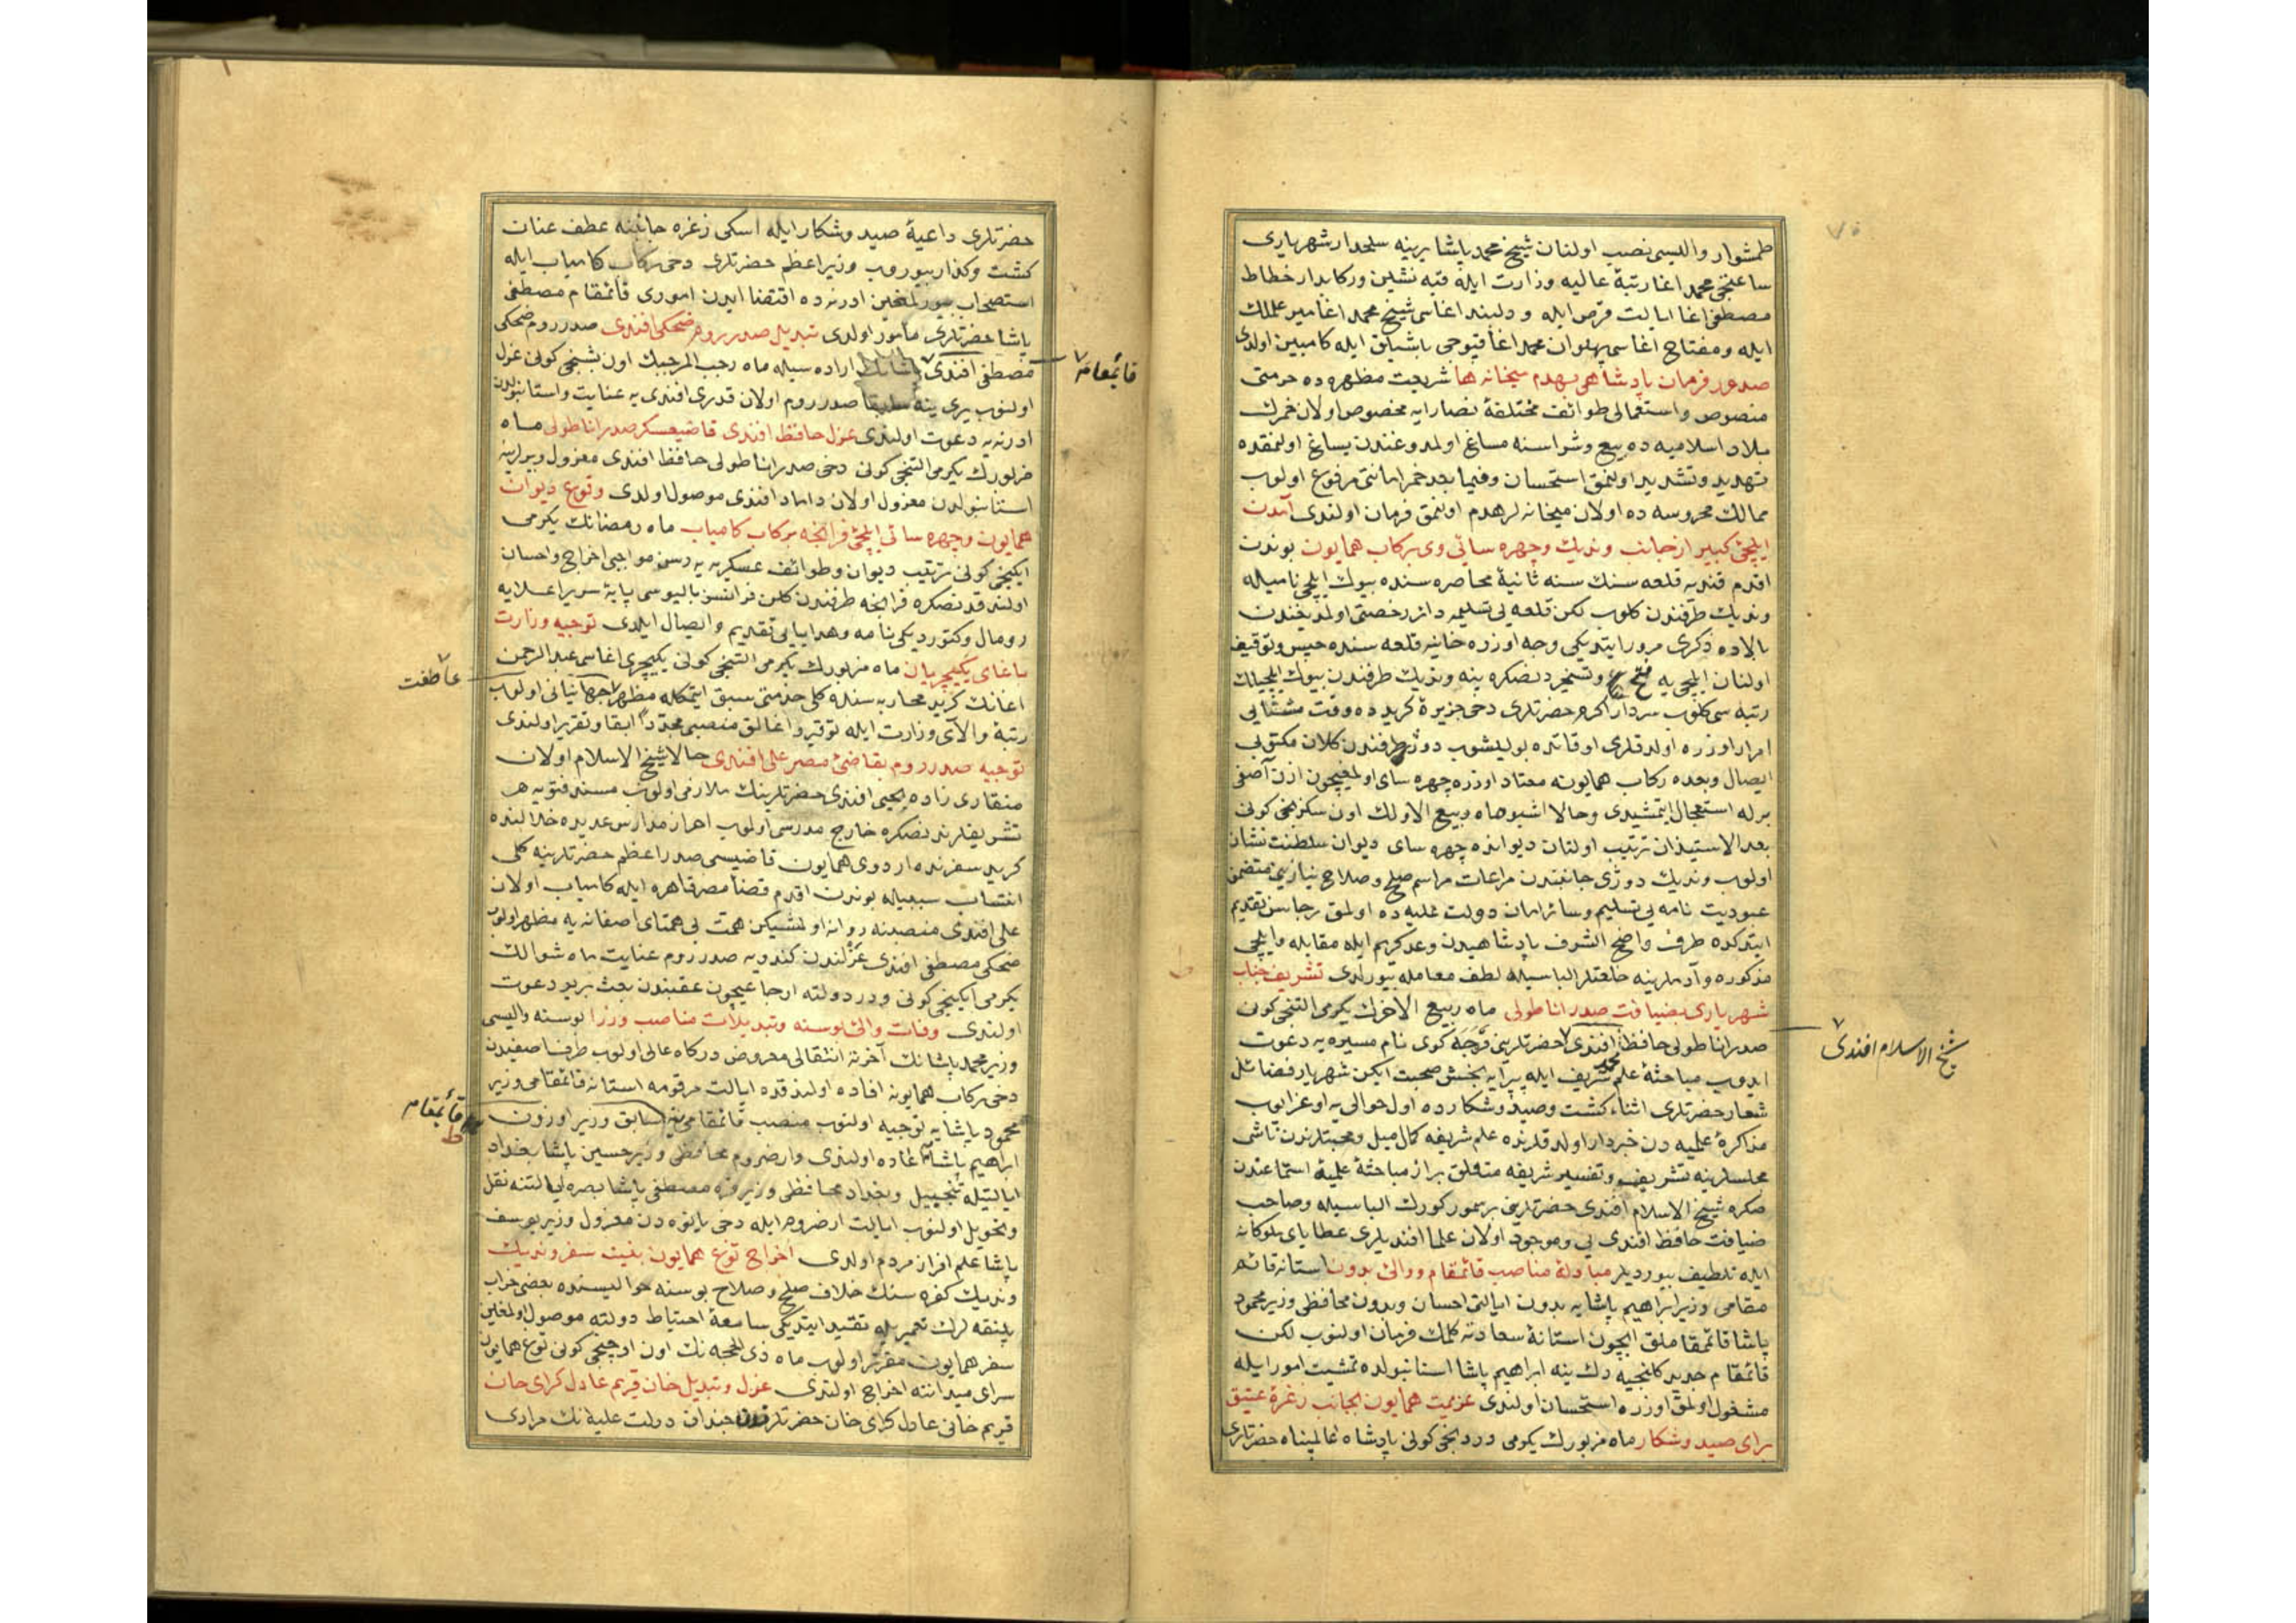 طمشوار والیسی نصب اولنان شیخ محمد پاشا یرینه سلحدار شهریاری
ساعتجی محمد اغا رتبهٔ عالیه وزارت ایله قبه نشین و رکابدار خطاط
مصطفی اغا ایالت قرص ایله و دلبند اغاسی شیخ محمد اغا میر علملك
ایله و مفتاح اغاسی پهلوان محمد اغا قپوجی باشیلق ایله کامبین اولدی
صدور فرمان پادشاهی بهدم میخانه ها شریعت مطهره ده حرمتی
منصوص و استعمالی طوائف مختلفهٔ نصارایه مخصوص اولان خمرك
بلاد اسلامیه ده بیع و شراسنه مساغ اولمدوغندن یساغ اولنمقده
تهدید و تشدید اولنمق استحسان و فیما بعد خمر امانتی مرفوع اولوب
ممالك محروسه ده اولان میخانه لر هدم اولنمق فرمان اولندی آمدن
ایلچئ کبیر از جانب وندیك و چهره سائی وی برکاب همایون بوندن
اقدم قندیه قلعه سنك سنه ثانیهٔ محاصره سنده بیوك ایلچی نامیله
وندیك طرفندن کلوب لکن قلعه یی تسلیمه دائر رخصتی اولمدیغندن
بالاده ذکری مرور ایتدیکی وجه اوزره خانیه قلعه سنده حبس و توقیف
اولنان ایلچی یه فتح و تسخیردنصکره ینه وندیك طرفندن بیوك ایلچیلك
رتبه سی کلوب سردار اکرم حضرتلری دخی جزیرهٔ کریدده وقت مشتایی
امرار اوزره اولدقلری اوقاتده بولیشوب دوژ طرفندن کلان مکتوبی
ایصال و بعده رکاب همایونه معتاد اوزره چهره سای اولمغیچون اذن آصفی
برله استعجال ایتمشیدی و حالا اشبو ماه ربیع الاولك اون سکزنجی کونی
بعد الاستیذان ترتیب اولنان دیوانده چهره سای دیوان سلطنت نشان
اولوب وندیك دوژی جانبندن مراعات مراسم صلح و صلاح نیازینی متضمن
عبودیت نامه یی تسلیم و سائر امان دولت علیه ده اولمق رجاسن تقدیم
ایتدکده طرف واضح الشرف پادشاهیدن وعد کریم ایله مقابله و ایلچی
مذکوره و آدملرینه خلعتلر الباسیله لطف معامله بیورلدی تشریف جناب
شهریاری بضیافت صدر اناطولی ماه ربیع الاخرك یکرمی التنجی کونی
صدر اناطولی حافظ محمد افندی حضرتلرینی قرجه کوی نام مسیره یه دعوت
شیخ الاسلام افندی
ایدوب مباحثهٔ علم شریف ایله پیرایه بخش صحبت ایکن شهریار فضائل
شعار حضرتلری اثناء کشت و صید و شکارده اول حوالی یه اوغرایوب
مذاکرهٔ علمیه دن خبردار اولدقلرنده علم شریفه کمال میل و محبتلرندن ناشی
مجلسلرینه تشریف و تفسیر شریفه متعلق بر از مباحثهٔ علمیه استماعندن
صکره شیخ الاسلام افندی حضرتلرینی بر سمور کورك الباسیله و صاحب
ضیافت حافظ افندی یی و موجود اولان علما افندیلری عطایای ملوکانه
ایله تلطیف بیوردیلر مبادلهٔ مناصب قائمقام و والئ بدون استانه قائم
مقامی وزیر ابراهیم پاشایه بدون ایالتی احسان و بدون محافظی وزیر محمود
پاشا قائمقاملق ایچون استانهٔ سعادته کلمك فرمان اولنوب لکن
قائمقام جدید کلنجیه دك ینه ابراهیم پاشا استانبولده تمشیت امور ایله
مشغول اولمق اوزره استحسان اولندی عزیمت همایون بجانب زغرهٔ عتیق
برای صید و شکار ماه مزبورك یکرمی دردنجی کونی پادشاه عالمپناه حضرتلری
حضرتلری داعیهٔ صید و شکار ایله اسکی زغره جانبنه عطف عنان
کشت و کذار بیوروب وزیر اعظم حضرتلری دخی رکاب کامیاب ایله
استصحاب بیورلمغین ادرنه ده اقتضا ایدن اموری قائمقام مصطفی
پاشا حضرتلری مأمور اولدی تبدیل صدر روم ضحکی افندی صدر روم ضحکی
مصطفی افندی اراده سیله ماه رجب المرجبك اون بشنجی کونی عزل
قائمقام
اولنوب یری ینه سابقا صدر روم اولان قدری افندی یه عنایت و استانبولدن
ادرنه یه دعوت اولندی عزل حافظ افندی قاضیعسکر صدر اناطولی ماه
مزبورك یکرمی التنجی کونی دخی صدر اناطولی حافظ افندی معزول و یرلرینه
استانبولدن معزول اولان داماد افندی موصول اولدی وقوع دیوان
همایون و چهره سائی ایلچئ فرانچه برکاب کامیاب ماه رمضانك یکرمی
ایکنجی کونی ترتیب دیوان و طوائف عسکریه یه رسن مواجبی اخراج و احسان
اولندقدنصکره فرانچه طرفندن کلن فرانسز بالیوسی پایهٔ سریر اعلایه
رومال و کتوردیکی نامه و هدایایی تقدیم و ایصال ایلدی توجیه وزارت
باغای یکیچریان ماه مزبورك یکرمی التنجی کونی یکیچری اغاسی عبد الرحمن
عاطفت
اغانك کرید محاربه سنده کلی خدمتی سبق ایتمکله مظهر جهانبانی اولوب
رتبهٔ والای وزارت ایله توقیر و اغالق منصبی مجدداً ابقا و تقریر اولندی
توجیه صدر روم بقاضئ مصر علی افندی حالا شیخ الاسلام اولان
منقاری زاده یحیی افندی حضرتلرینك ملازمی اولوب مسند فتویه
تشریفلرندنصکره خارج مدرسی اولوب احراز مدارس عدیده خلالنده
کرید سفرنده اردوی همایون قاضیسی صدر اعظم حضرتلرینه کلی
انتساب سببیله بوندن اقدم قضاء مصر قاهره ایله کامیاب اولان
علی افندی منصبنه روانه اولمشیکن همت بی همتای اصفانه یه مظهر اولوب
ضحکی مصطفی افندی عزلندن کندویه صدر روم عنایت ماه شوالك
یکرمی ایکنجی کونی ودر دولته ارجاعیچون عقبندن بعث برید دعوت
اولندی وفات والئ بوسنه و تبدیلات مناصب وزرا بوسنه والیسی
وزیر محمد پاشانك آخرته انتقالی معروض درکاه عالی اولوب طرف اصفیدن
دخی رکاب همایونه افاده اولندقده ایالت مرقومه استانه قائمقامی وزیر
محمود پاشایه توجیه اولنوب منصب قائمقامی ینه سابق وزیر اوزون
قائمقام
ابراهیم پاشایه اعاده اولندی وارضروم محافظی وزیر حسین پاشا بغداد
ایالتیله تبجیل و بغداد محافظی وزیر قره مصطفی پاشا بصره ایالتنه نقل
و تحویل اولنوب ایالت ارضروم ایله دخی یانوه دن معزول وزیر یوسف
پاشا علم افراز مردم اولدی اخراج توغ همایون بنیت سفر وندیك
وندیك کفره سنك خلاف صلح و صلاح بوسنه حوالیسنده بعضی خراب
پلنقه لرك تعمیریله تقید ایتدیکی سامعهٔ احتیاط دولته موصول اولمغین
سفر همایون مقرر اولوب ماه ذی الحجه نك اون اوچنجی کونی توغ همایون
سرای میداننه اخراج اولندی عزل و تبدیل خان قریم عادل کرای خان
قریم خانی عادل کرای خان حضرتلرندن چندان دولت علیه نك مرادی